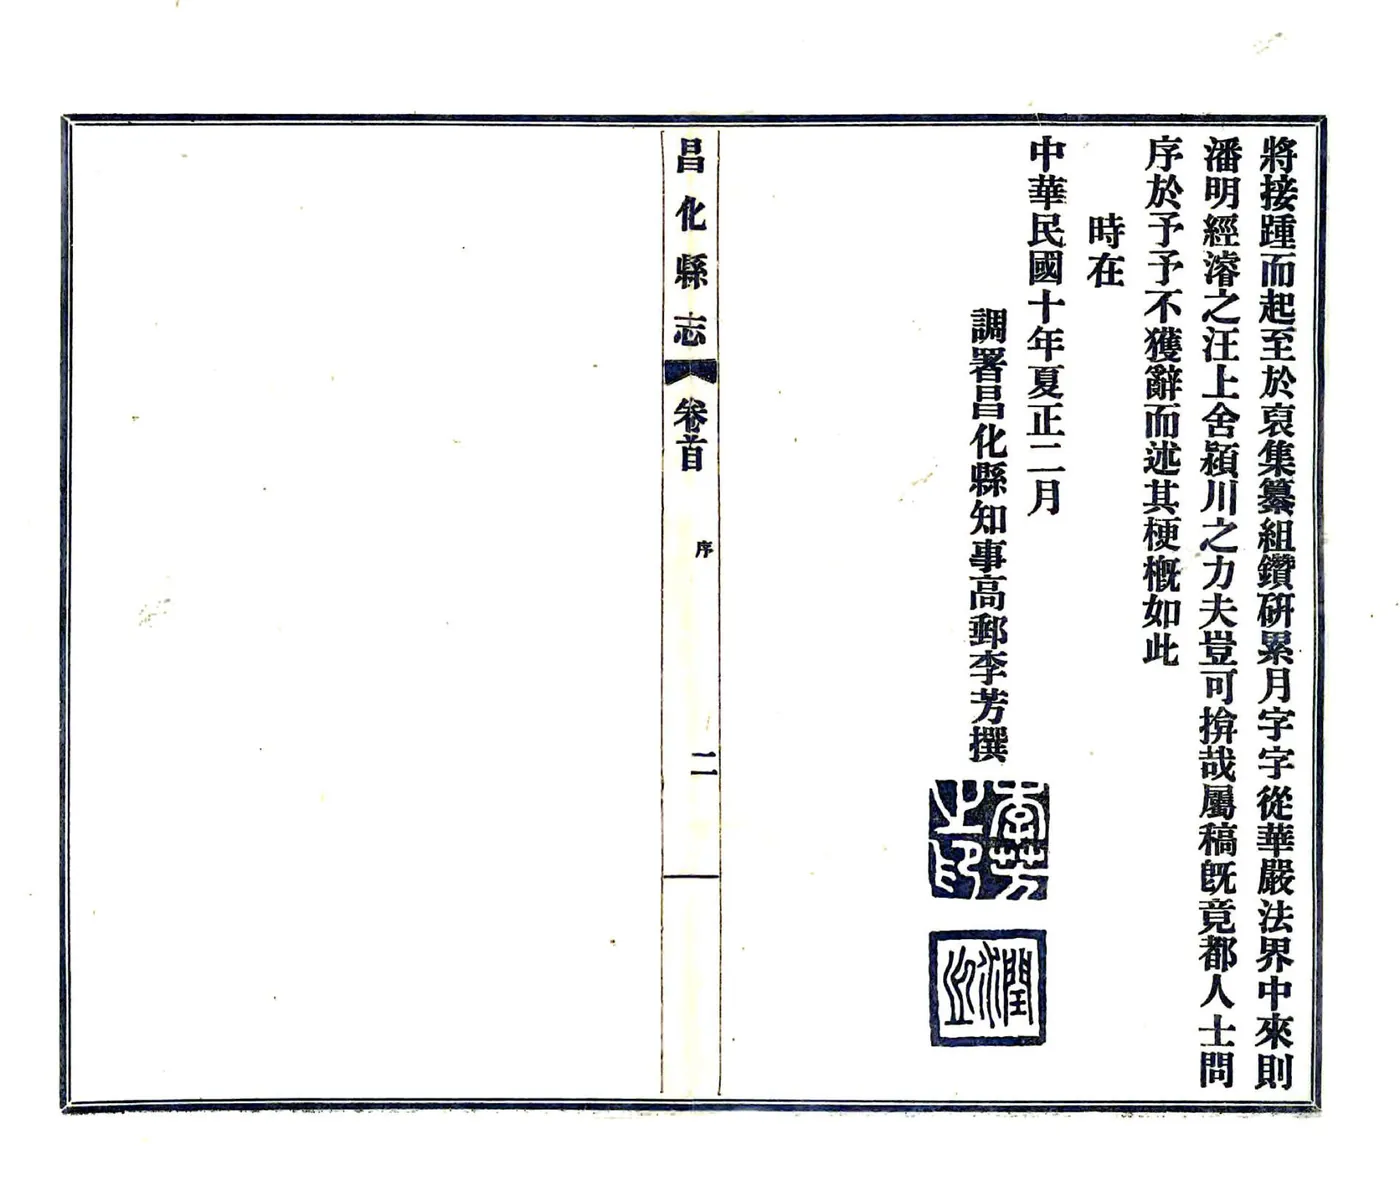 將接踵而起至於裒集纂組鑽硏累月字字從華嚴法界中來則
潘明經濬之汪上舍潁川之力夫豈可揜哉屬稿旣竟都人士問
序於予予不獲辭而述其梗槪如此
時在
中華民國十年夏正二月
調署昌化縣知事高郵李芳撰
李芳之印
昌化縣志
卷首
序
二